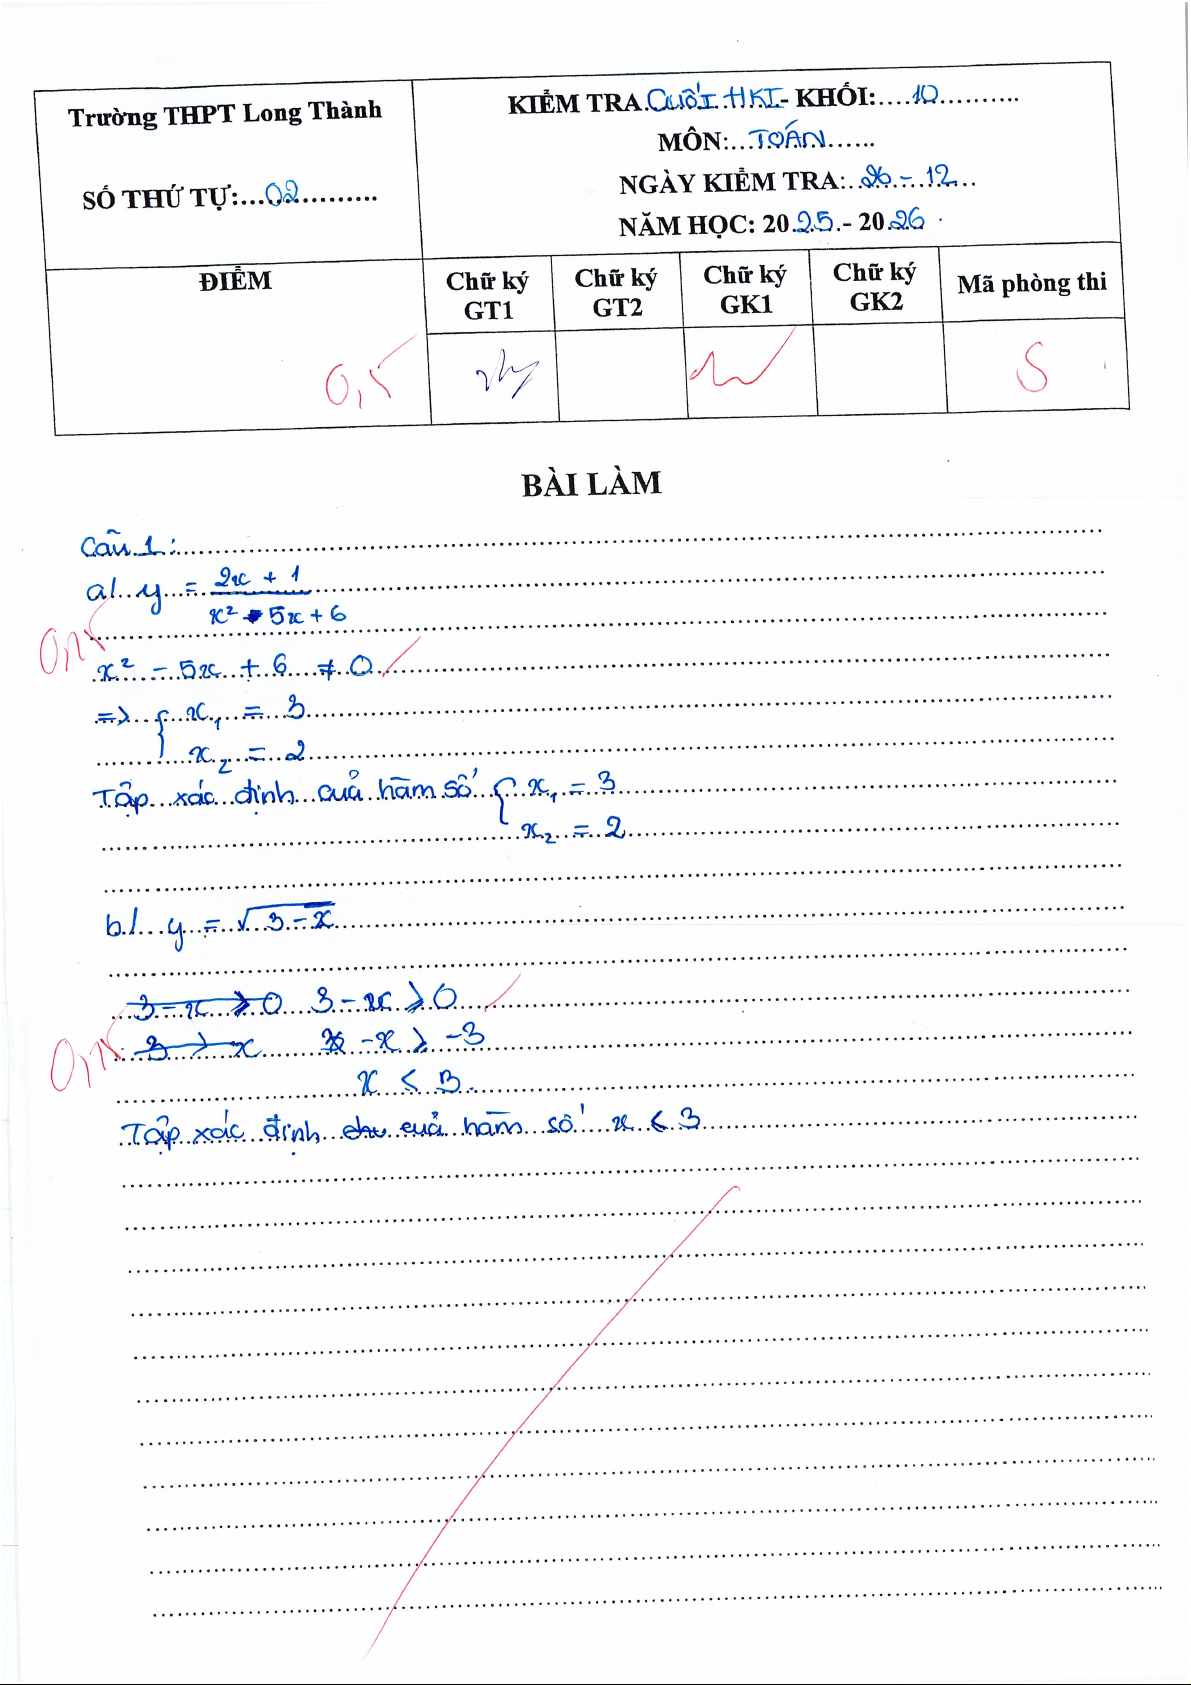 Trường THPT Long Thành
SỐ THỨ TỰ:...02..........
KIỂM TRA.Cuối HKI.- KHỐI:....10..........
MÔN:...TOÁN......
NGÀY KIỂM TRA:..26.-.12..
NĂM HỌC: 20.25.- 20.26.
ĐIỂM
Chữ ký GT1
Chữ ký GT2
Chữ ký GK1
Chữ ký GK2
Mã phòng thi
0,5
S
BÀI LÀM
Câu 1:
a/. y = (2x + 1)/(x² - 5x + 6)
0,25
x² - 5x + 6 ≠ 0
=> { x₁ = 3
x₂ = 2
Tập xác định của hàm số { x₁ = 3
x₂ = 2
b/. y = √(3-x)
3-x > 0 3-x ≥ 0
0,25 3 > x -x ≥ -3
x < 3.
Tập xác định của hàm số x < 3